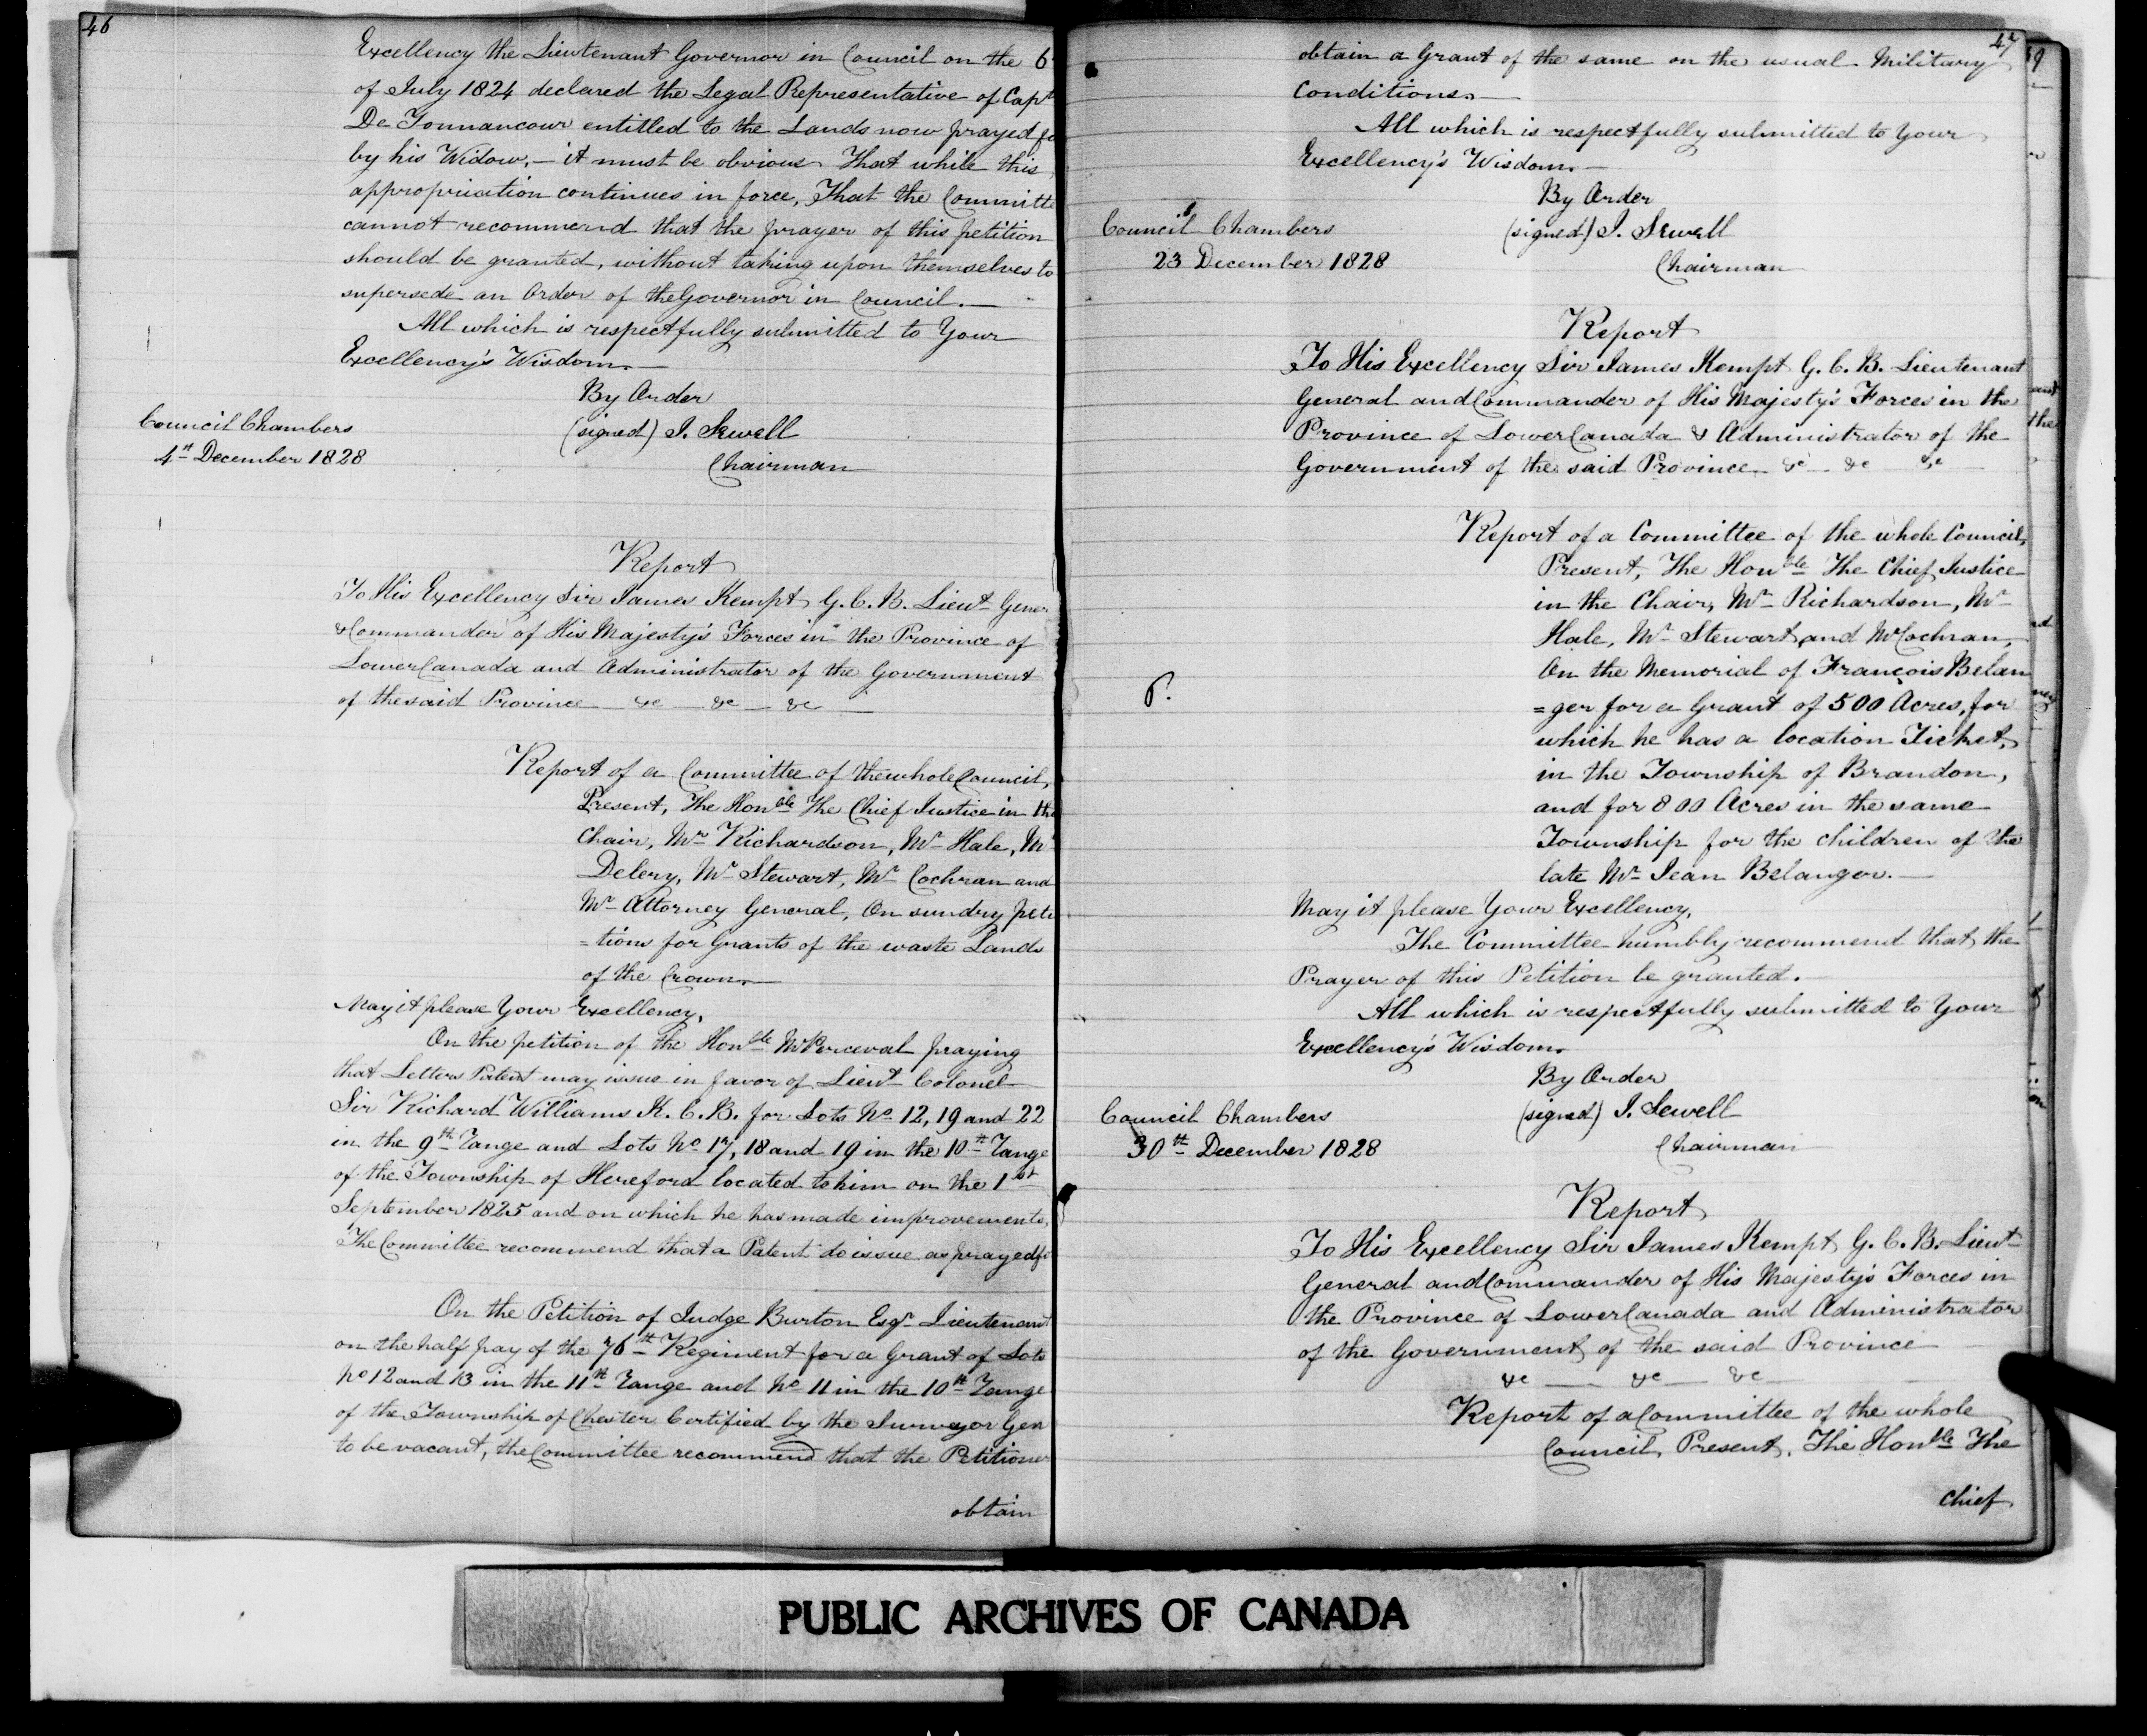 46
Excellency the Lieutenant Governor in Council on the 6
of July 1824 declared the Legal Representative of Capt
De Tonnancour entitled to the Lands now prayed fo
by his Widow,– it must be obvious That while this
appropriation continues in force, That the Committe
cannot recommend that the prayer of this petition
should be granted, without taking upon themselves to
supersede an Order of the Governor in Council.–
All which is respectfully submitted to Your
Excellency's Wisdom.–
By Order
Council Chambers (signed) J. Sewell
4th December 1828 Chairman
Report
To His Excellency Sir James Kempt G. C. B. Lieut Gener
& Commander of His Majesty's Forces in the Province of
Lower Canada and Administrator of the Government
of the said Province – &c – &c – &c –
Report of a Committee of the whole Council,
Present, The Honble The Chief Justice in the
Chair, Mr Richardson, Mr Hale, Mr
Delery, Mr Stewart, Mr Cochran and
Mr Attorney General, On sundry peti
=tions for Grants of the waste Lands
of the Crown.–
May it please Your Excellency,
On the petition of the Honble Mr Perceval praying
that Letters Patent may issue in favor of Lieut Colonel
Sir Richard Williams K. C. B. for Lots No 12, 19 and 22
in the 9th Range and Lots No 17, 18 and 19 in the 10th Range
of the Township of Hereford located to him on the 1st
September 1825 and on which he has made improvements,
The Committee recommend that a Patent do issue as prayed fo
On the Petition of Judge Burton Esqr Lieutenant
on the half pay of the 76th Regiment for a Grant of Lots
No 12 and 13 in the 11th Range and No 11 in the 10th Range
of the Township of Chester Certified by the Surveyor Gen
to be vacant, the Committee recommend that the Petitioner
obtain
47
obtain a Grant of the same on the usual Military
Conditions.–
All which is respectfully submitted to Your
Excellency's Wisdom.–
By Order
Council Chambers (signed) J. Sewell
23 December 1828 Chairman
Report
To His Excellency Sir James Kempt G. C. B. Lieutenant
General and Commander of His Majesty's Forces in the
Province of Lower Canada & Administrator of the
Government of the said Province &c – &c &c
Report of a Committee of the whole Council,
Present, The Honble The Chief Justice
in the Chair, Mr Richardson, Mr
Hale, Mr Stewart, and Mr Cochran,
On the Memorial of François Belan
=ger for a Grant of 500 Acres, for
which he has a location Ticket,
in the Township of Brandon,
and for 800 Acres in the same
Township for the children of the
late Mr Jean Belanger.–
May it please Your Excellency,
The Committee humbly recommend that the
Prayer of this Petition be granted.
All which is respectfully submitted to Your
Excellency's Wisdom.
By Order
Council Chambers (signed) J. Sewell
30th December 1828 Chairman
Report
To His Excellency Sir James Kempt G. C. B. Lieut
General and Commander of His Majesty's Forces in
the Province of Lower Canada and Administrator
of the Government of the said Province
&c – &c – &c
Report of a Committee of the whole
Council, Present, The Honble The
Chief
PUBLIC ARCHIVES OF CANADA